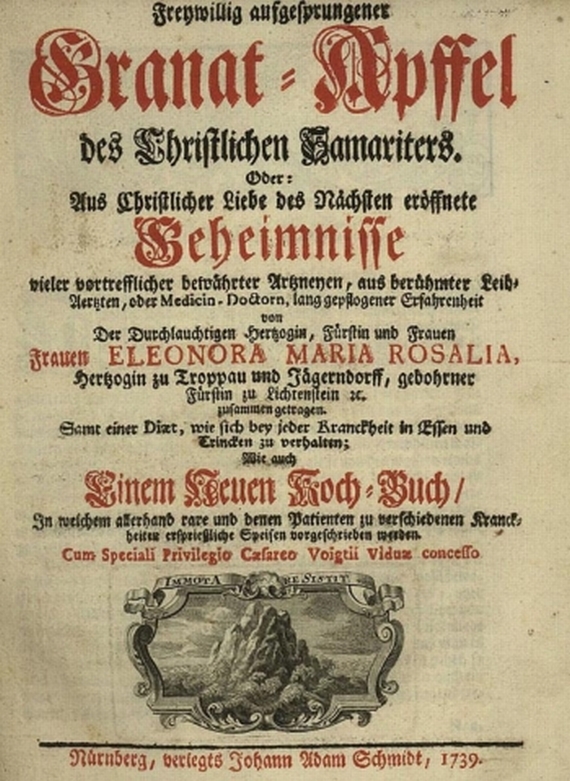 Freywillig aufgesprungener
Granat-Apffel
des Christlichen Samariters.
Oder:
Aus Christlicher Liebe des Nächsten eröffnete
Geheimnisse
vieler vortrefflicher bewährter Artzneyen, aus berühmter Leib-
Aertzten, oder Medicin-Doctorn, lang gepflogener Erfahrenheit
von
Der Durchlauchtigen Hertzogin, Fürstin und Frauen
Frauen ELEONORA MARIA ROSALIA,
Hertzogin zu Troppau und Jägerndorff, gebohrner
Fürstin zu Lichtenstein ꝛc.
zusammen getragen.
Samt einer Diæt, wie sich bey jeder Kranckheit in Essen und
Trincken zu verhalten;
Wie auch
Einem Neuen Koch-Buch/
In welchem allerhand rare und denen Patienten zu verschiedenen Kranck-
heiten erspriessliche Speisen vorgeschrieben werden.
Cum Speciali Privilegio Cæsareo Voigtii Viduæ concesso
IMMOTA RESISTIT
Nürnberg, verlegts Johann Adam Schmidt, 1739.